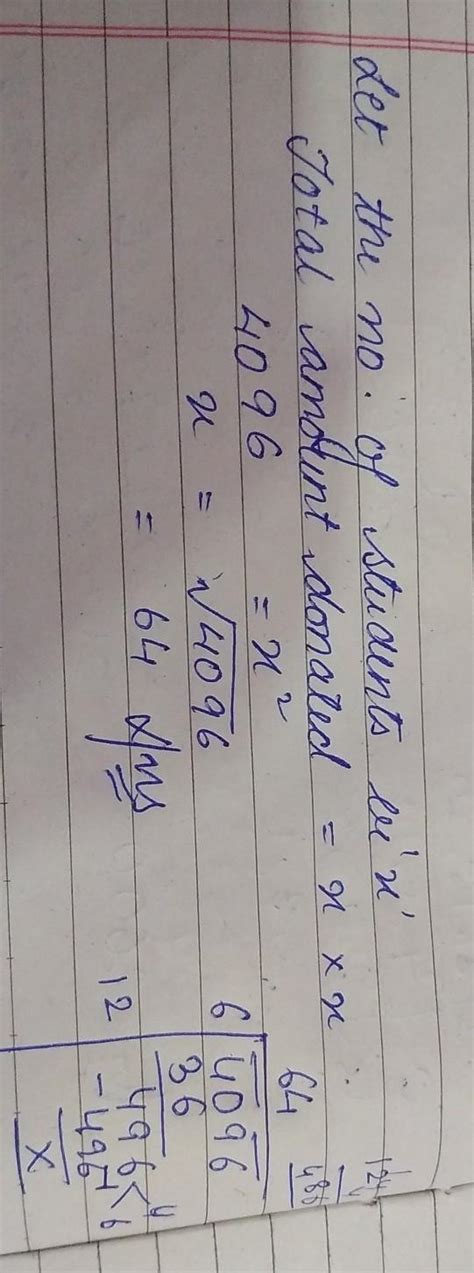 Let the no. of students be 'x'
Total amount donated = x × x
4096 = x²
x = √4096
= 64 Ans
64
6 4096
36
12 496
- 496
x